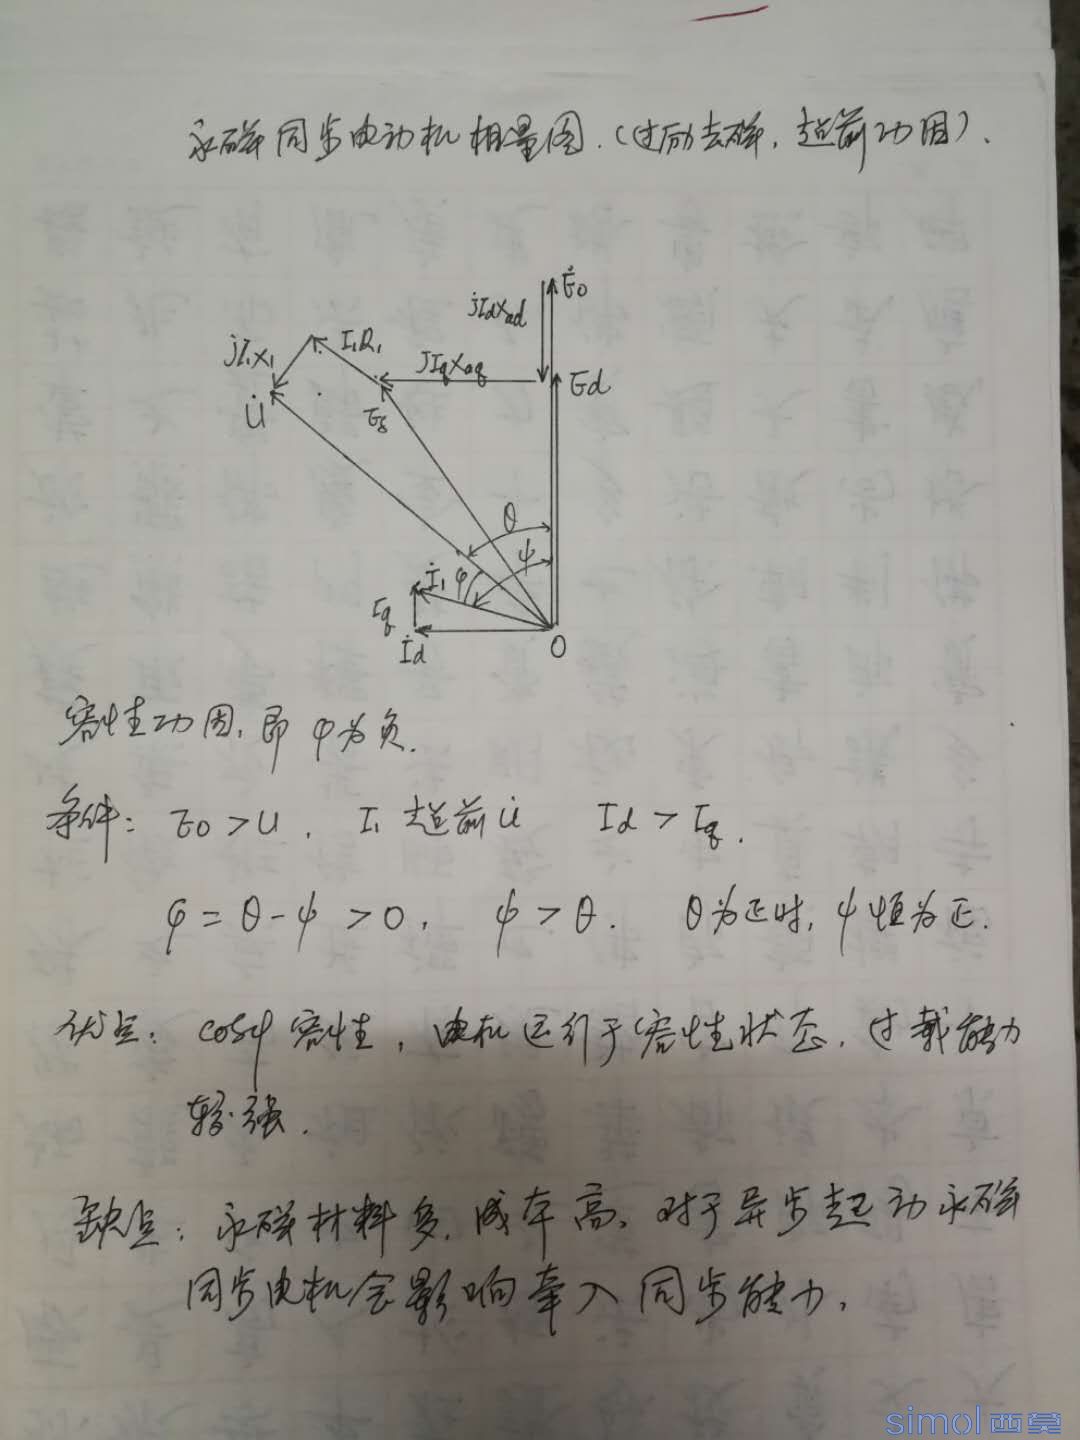 永磁同步电动机相量图.(过励去磁,超前功因).
Ė0
jIdXad
jI1X1
I1R1
jIqXaq
Ed
U̇
Eδ
θ
ψ
İ1 φ
Iq
İd
O
容性功因,即 φ为负.
条件: E0>U , I1 超前 U̇ Id > Iq .
φ = θ-ψ >0, ψ > θ. θ为正时, ψ恒为正.
优点: cosφ 容性, 电机运行于容性状态, 过载能力
较强.
缺点: 永磁材料多, 成本高, 对于异步起动永磁
同步电机会影响牵入同步能力,
simol西莫